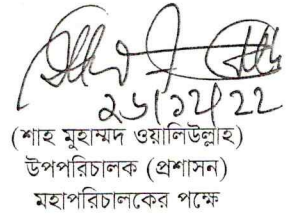 ২৬/১২/২২
(শাহ মুহাম্মদ ওয়ালিউল্লাহ)
উপপরিচালক (প্রশাসন)
মহাপরিচালকের পক্ষে